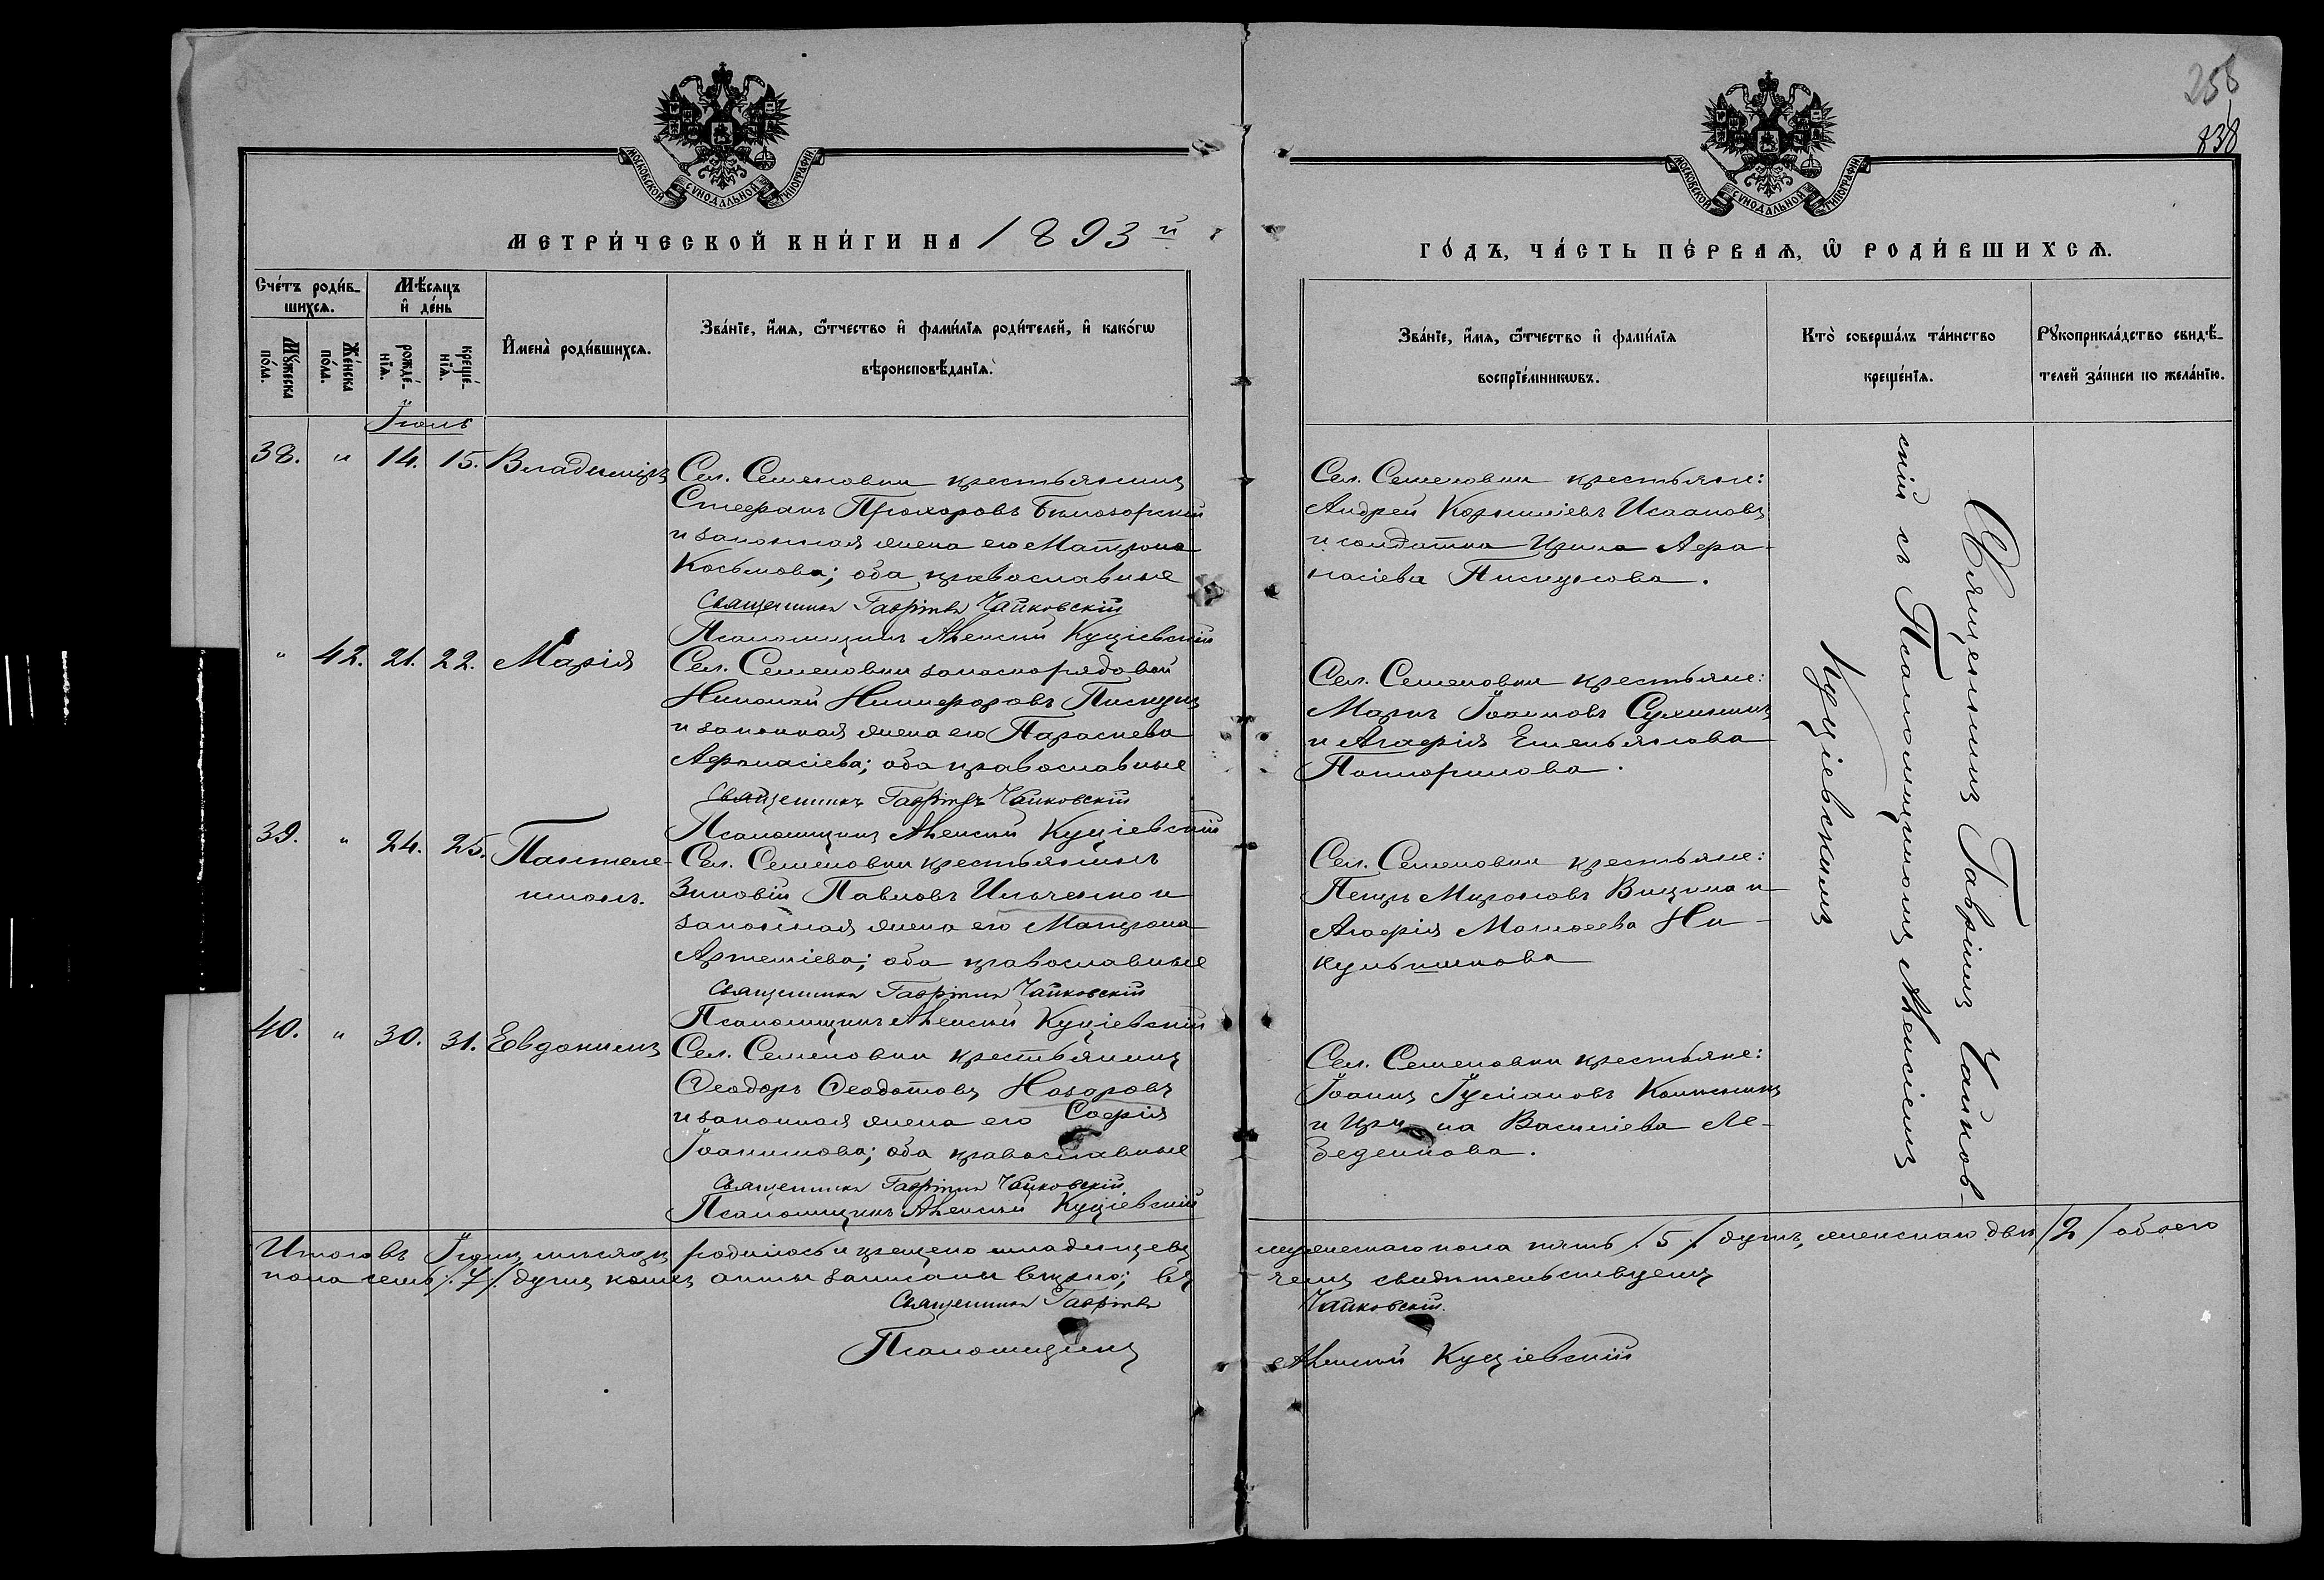 258
838
МОСКОВСКОЙ СѴНОДАЛЬНОЙ ТИПОГРАФІИ
МОСКОВСКОЙ СѴНОДАЛЬНОЙ ТИПОГРАФІИ
МЕТРИ́ЧЕСКОЙ КНИ́ГИ НА 1893й
ГО́ДЪ, ЧА́СТЬ ПЕ́РВАЯ, Ѿ РОДИ́ВШИХСЯ.
Сче́тъ роди́в-
шихся.
Мѣ́сяцъ
и҆ де́нь
Мꙋ́жеска
по́ла.
Же́нска
по́ла.
рожде́-
нїя.
креще́-
нїя.
И҆мена̀ роди́вшихся.
Зва́нїе, и҆́мя, ѻ҆́тчество и҆ фами́лїя роди́телей, и҆ како́гѡ
вѣроисповѣ́данїя.
Зва́нїе, и҆́мя, ѻ҆́тчество и҆ фами́лїя
воспрїе́мникѡвъ.
Кто̀ соверша́лъ та́инство
креще́нїя.
Рꙋкоприкла́дство свидѣ́-
телей за́писи по жела́нїю.
Іюль
38. " 14. 15. Владиміръ
Сел. Семеновки крестьянинъ
Стефанъ Прохоровъ Бѣлозорскій
и законная жена его Матрона
Косьмова; оба православные
Священникъ Гавріилъ Чайковскій
Псаломщикъ Алексій Куціевскій
Сел. Семеновки крестьяне:
Андрей Корниліевъ Исааковъ
и солдатка Ирина Афа-
насіева Пискунова.
" 42. 21. 22. Марія
Сел. Семеновки запаснорядовой
Николай Никифоровъ Пискунъ
и законная жена его Параскева
Афанасіева; оба православные
Священникъ Гавріилъ Чайковскій
Псаломщикъ Алексій Куціевскій
Сел. Семеновки крестьяне:
Маркъ Іоанновъ Сухининъ
и Агафія Емельянова
39. " 24. 25. Пантеле-
имонъ.
Сел. Семеновки крестьянинъ
Зиновій Павловъ Ильченко и
законная жена его Матрона
Артеміева; оба православные
Священникъ Гавріилъ Чайковскій
Псаломщикъ Алексій Куціевскій
Сел. Семеновки крестьяне:
Петръ Мироновъ и
Агафія Моисеева Ни-
40. " 30. 31. Евдокимъ
Сел. Семеновки крестьянинъ
Ѳеодоръ Ѳеодотовъ Назаровъ
и законная жена его Софія
Іоаннова; оба православные
Священникъ Гавріилъ Чайковскій
Псаломщикъ Алексій Куціевскій
Сел. Семеновки крестьяне:
Іоаннъ
и Ирина Василіева Ле-
беденкова.
Священникъ Гавріилъ Чайков-
скій съ Псаломщикомъ Алексіемъ
Куціевскимъ
Итого въ Іюлѣ мѣсяцѣ родилось и крещено младенцевъ мужескаго пола пять /5/ душъ, женскаго двѣ /2/ обоего
пола семь /7/ душъ коихъ акты записаны вѣрно; въ чемъ свидѣтельствуемъ
Священникъ Гавріилъ Чайковскій.
Псаломщикъ Алексій Куціевскій